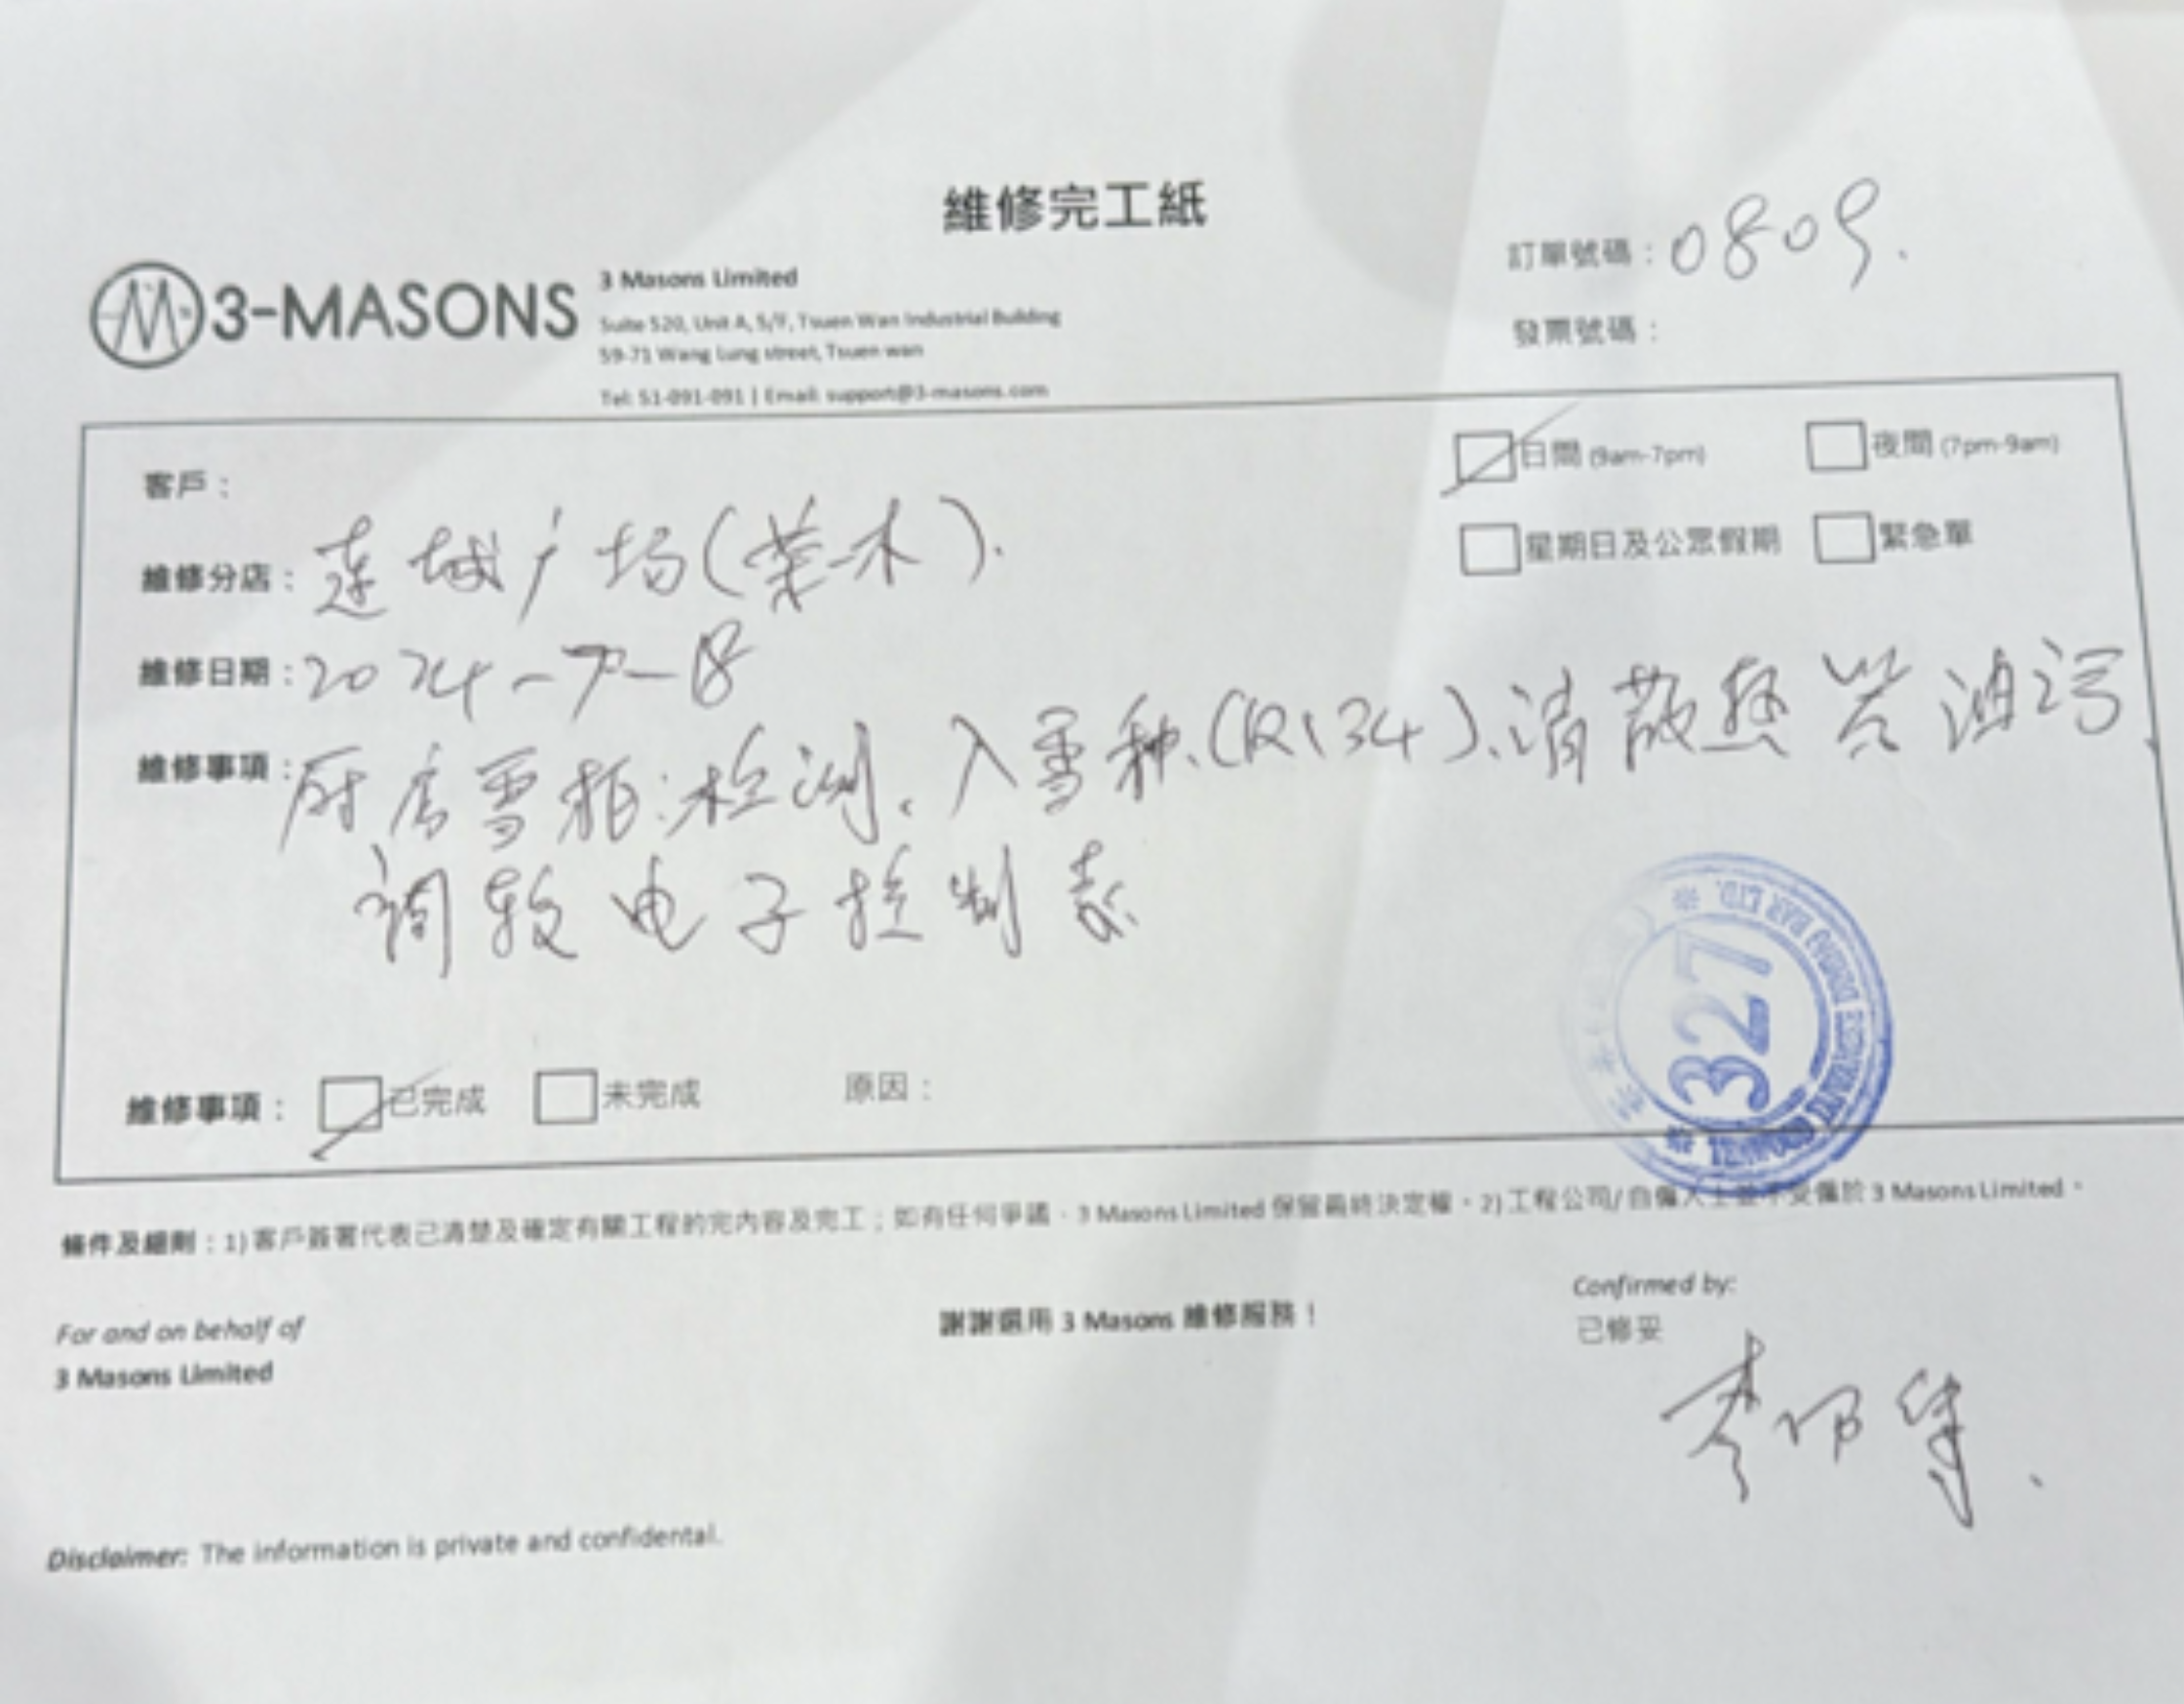 維修完工紙
訂單號碼：0809.
發票號碼：
3-MASONS
3 Masons Limited
Suite 520, Unit A, 5/F, Tsuen Wan Industrial Building
59-71 Wang Lung street, Tsuen wan
Tel: 51-091-091 | Email: support@3-masons.com
日間 (9am-7pm) 夜間 (7pm-9am)
星期日及公眾假期 緊急單
客戶：
維修分店：連城广场(業木).
維修日期：2024-7-18
維修事項：厨房雪柜:检测、入雪种、(R134)、清散热器油污、
调较电子控制表
維修事項： 已完成 未完成 原因：
327
BAR LTD.
條件及細則：1) 客戶簽署代表已清楚及確定有關工程的完內容及完工；如有任何爭議，3 Masons Limited 保留最終決定權。2) 工程公司/ 自僱人士並不受僱於 3 Masons Limited。
For and on behalf of
3 Masons Limited
謝謝選用 3 Masons 維修服務！
Confirmed by:
已修妥
Disclaimer: The information is private and confidental.